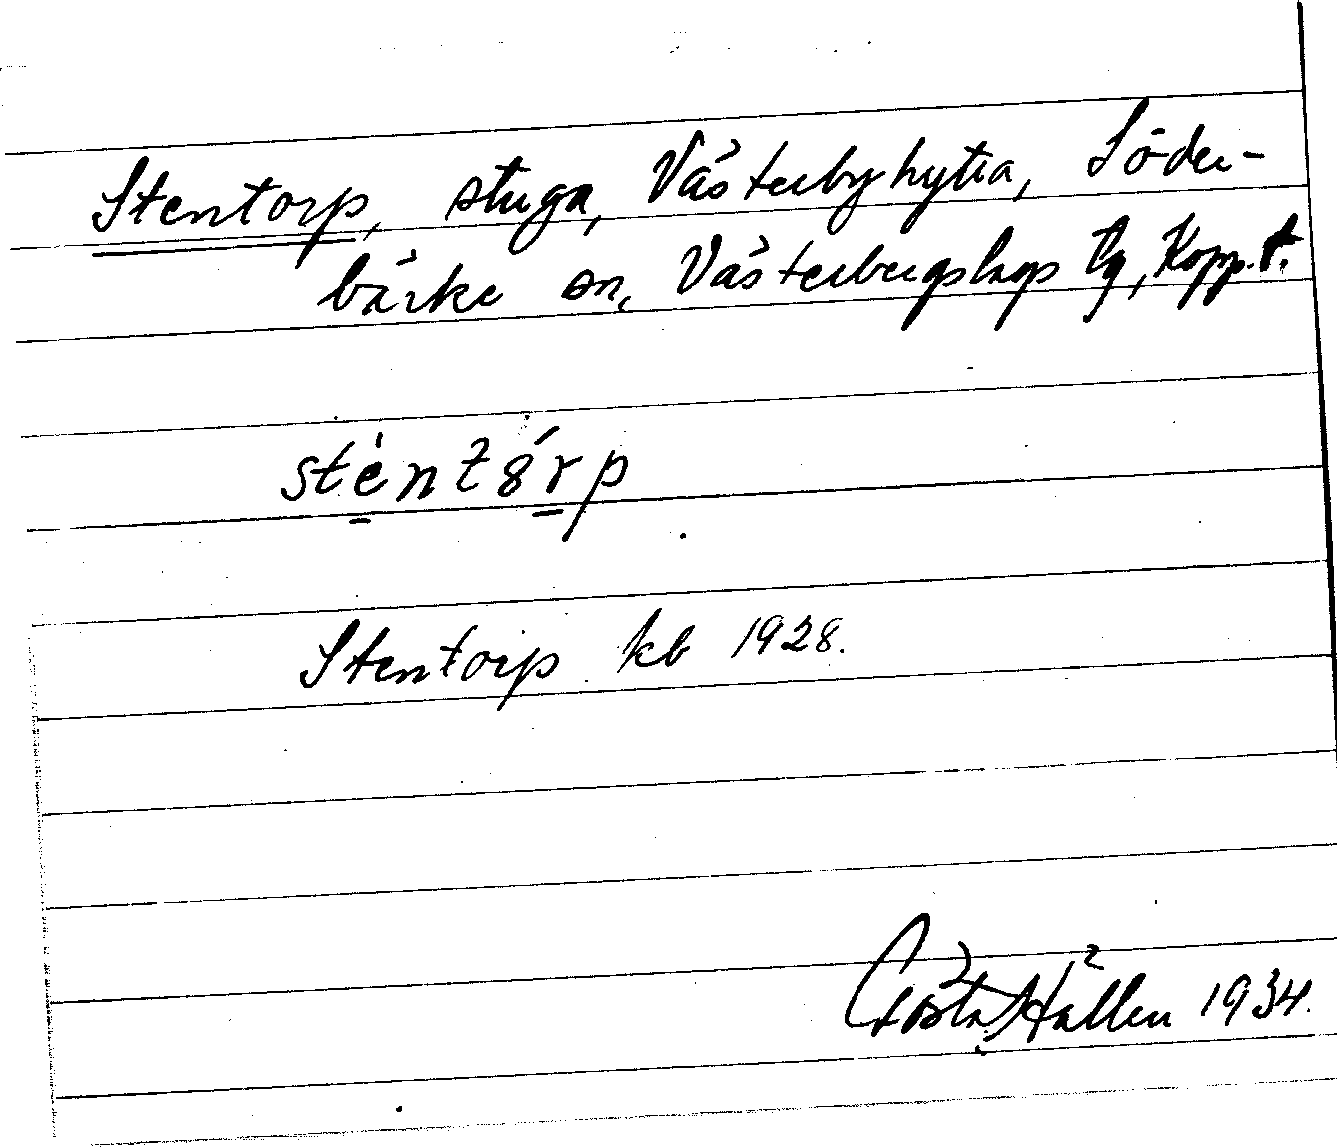 Stentorp, stuga, Västerbyhytta, Söder-
bärke sn, Västerbergslags tg, Kopp. l.
sténtórp
Stentorp kb 1928.
Gösta Hällen 1934.